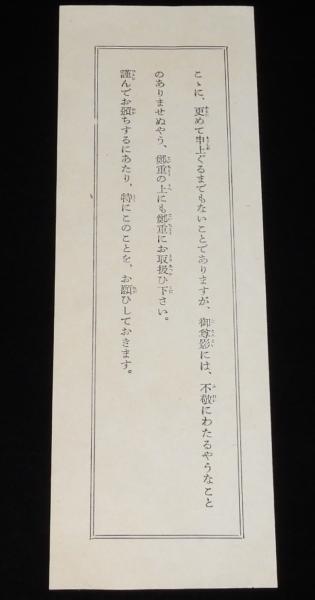 こゝに、更めて申上ぐるまでもないことでありますが、御尊影には、不敬にわたるやうなこと
のありませぬやう、鄭重の上にも鄭重にお取扱ひ下さい。
謹んでお頒ちするにあたり、特にこのことを、お願ひしておきます。